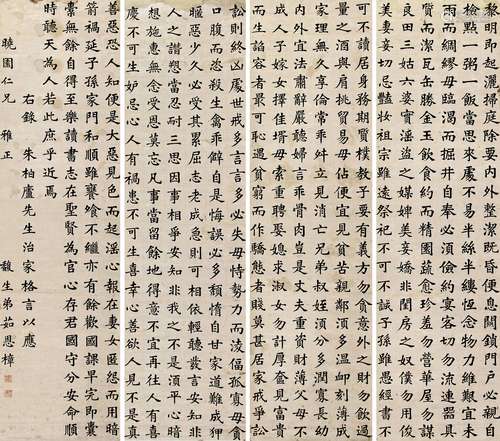 黎明即起灑掃庭除要內外整潔既昏便息關鎖門户必親自
檢點一粥一飯當思來處不易半絲半縷恒念物力維艱宜未
雨而綢繆毋臨渴而掘井自奉必須儉約宴客切勿流連器具
質而潔瓦缶勝金玉飲食約而精園蔬愈珍羞勿營華屋勿謀
良田三姑六婆實淫盜之媒婢美妾嬌非閨房之奴僕勿用俊
美妻妾切忌豔妝祖宗雖遠祭祀不可不誠子孫雖愚經書不
可不讀居身務期質樸教子要有義方勿貪意外之財勿飲過
量之酒與肩挑貿易毋佔便宜見貧苦親鄰須多溫卹刻薄成
家理無久享倫常乖舛立見消亡兄弟叔姪須分多潤寡長幼
內外宜法肅辭嚴聽婦言乖骨肉豈是丈夫重資財薄父母不
成人子嫁女擇佳壻毋索重聘娶媳求淑女勿計厚奩見富貴
而生諂容者最可恥遇貧窮而作驕態者賤莫甚居家戒爭訟
訟則終凶處世戒多言言多必失毋恃勢力而凌偪孤寡毋貪
口腹而恣殺生禽乖僻自是悔誤必多頹惰自甘家道難成狎
暱惡少久必受其累屈志老成急則可相依輕聽發言安知非
人之譖愬當忍耐三思因事相爭安知非我之不是須平心暗
想施惠無念受恩莫忘凡事當留餘地得意不宜再往人有喜
慶不可生妒忌心人有禍患不可生喜幸心善欲人見不是真
善惡恐人知便是大惡見色而起淫心報在妻女匿怨而用暗
箭禍延子孫家門和順雖饔飧不繼亦有餘歡國課早完即囊
橐無餘自得至樂讀書志在聖賢為官心存君國守分安命順
時聽天為人若此庶乎近焉
右錄 朱柏廬先生治家格言以應
曉園仁兄 雅正 馥生弟茹恩樟